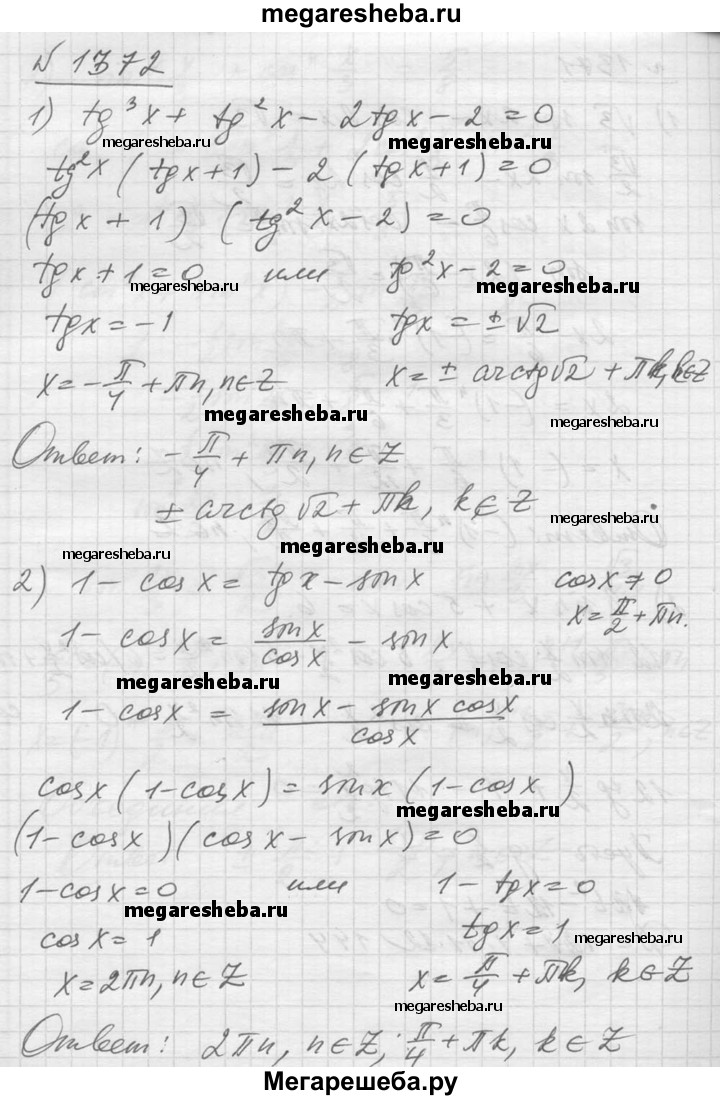 megaresheba.ru
N 1372
1) tg³x + tg²x - 2tgx - 2 = 0
megaresheba.ru megaresheba.ru
tg²x (tgx+1) - 2 (tgx+1) = 0
(tgx + 1) (tg²x - 2) = 0
tgx + 1 = 0 или tg²x - 2 = 0
megaresheba.ru megaresheba.ru
tgx = -1 tgx = ± √2
x = -π/4 + πn, n∈Z x = ± arctg√2 + πk, k∈Z
megaresheba.ru megaresheba.ru
Ответ: -π/4 + πn, n∈Z
± arctg √2 + πk, k∈Z
megaresheba.ru
megaresheba.ru megaresheba.ru
2) 1 - cosx = tgx - sinx cosx ≠ 0
1 - cosx = sinx/cosx - sinx x = π/2 + πn.
megaresheba.ru megaresheba.ru
1 - cosx = (sinx - sinx cosx)/cosx
cosx (1 - cosx) = sinx (1 - cosx)
megaresheba.ru
(1 - cosx)(cosx - sinx) = 0
1 - cosx = 0 или 1 - tgx = 0
megaresheba.ru
cosx = 1 tgx = 1
megaresheba.ru
x = 2πn, n∈Z x = π/4 + πk, k∈Z
megaresheba.ru
Ответ: 2πn, n∈Z; π/4 + πk, k∈Z
Мегарешеба.ру